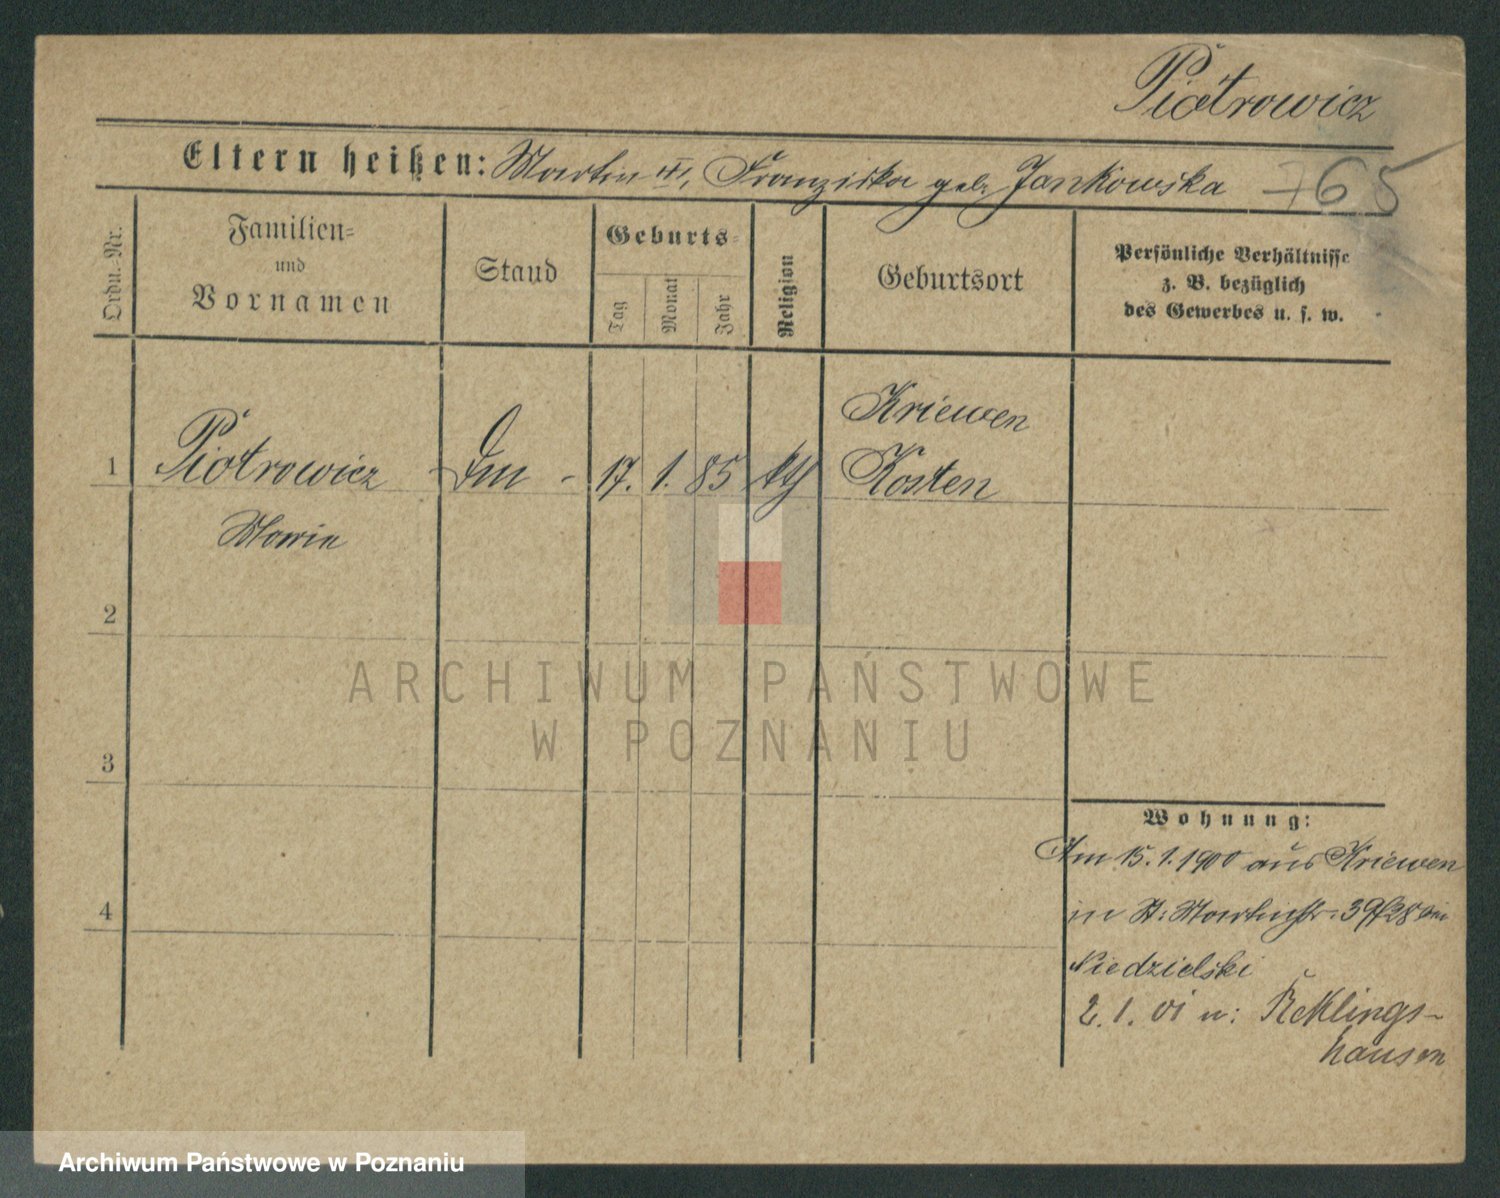 Piotrowicz
Eltern heißen: Martin III, Franziska geb. Jankowska
765
Ordn.-Nr.
Familien-
und
Vornamen
Stand
Geburts-
Tag
Monat
Jahr
Religion
Geburtsort
Persönliche Verhältnisse
z. B. bezüglich
des Gewerbes u. s. w.
Kriewen
1 Piotrowicz - 17. 1. 85 Kosten
Marie
2
ARCHIWUM PAŃSTWOWE
W POZNANIU
3
Wohnung:
Am 15.1.1900 aus Kriewen
in St: Martinstr. 39/28 bei
Niedzielski
2.1.01 n: Reklings-
hausen
4
Archiwum Państwowe w Poznaniu